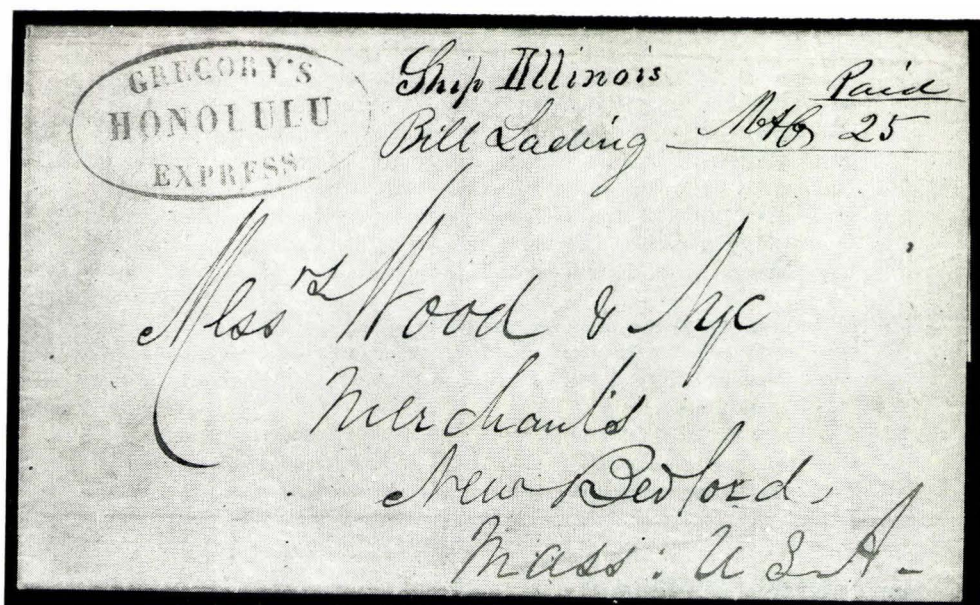 GREGORY'S
HONOLULU
EXPRESS
Ship Illinois
Bill Lading
Paid
25
Messrs Wood & Nye
Merchants
New Bedford,
Mass: U S A-